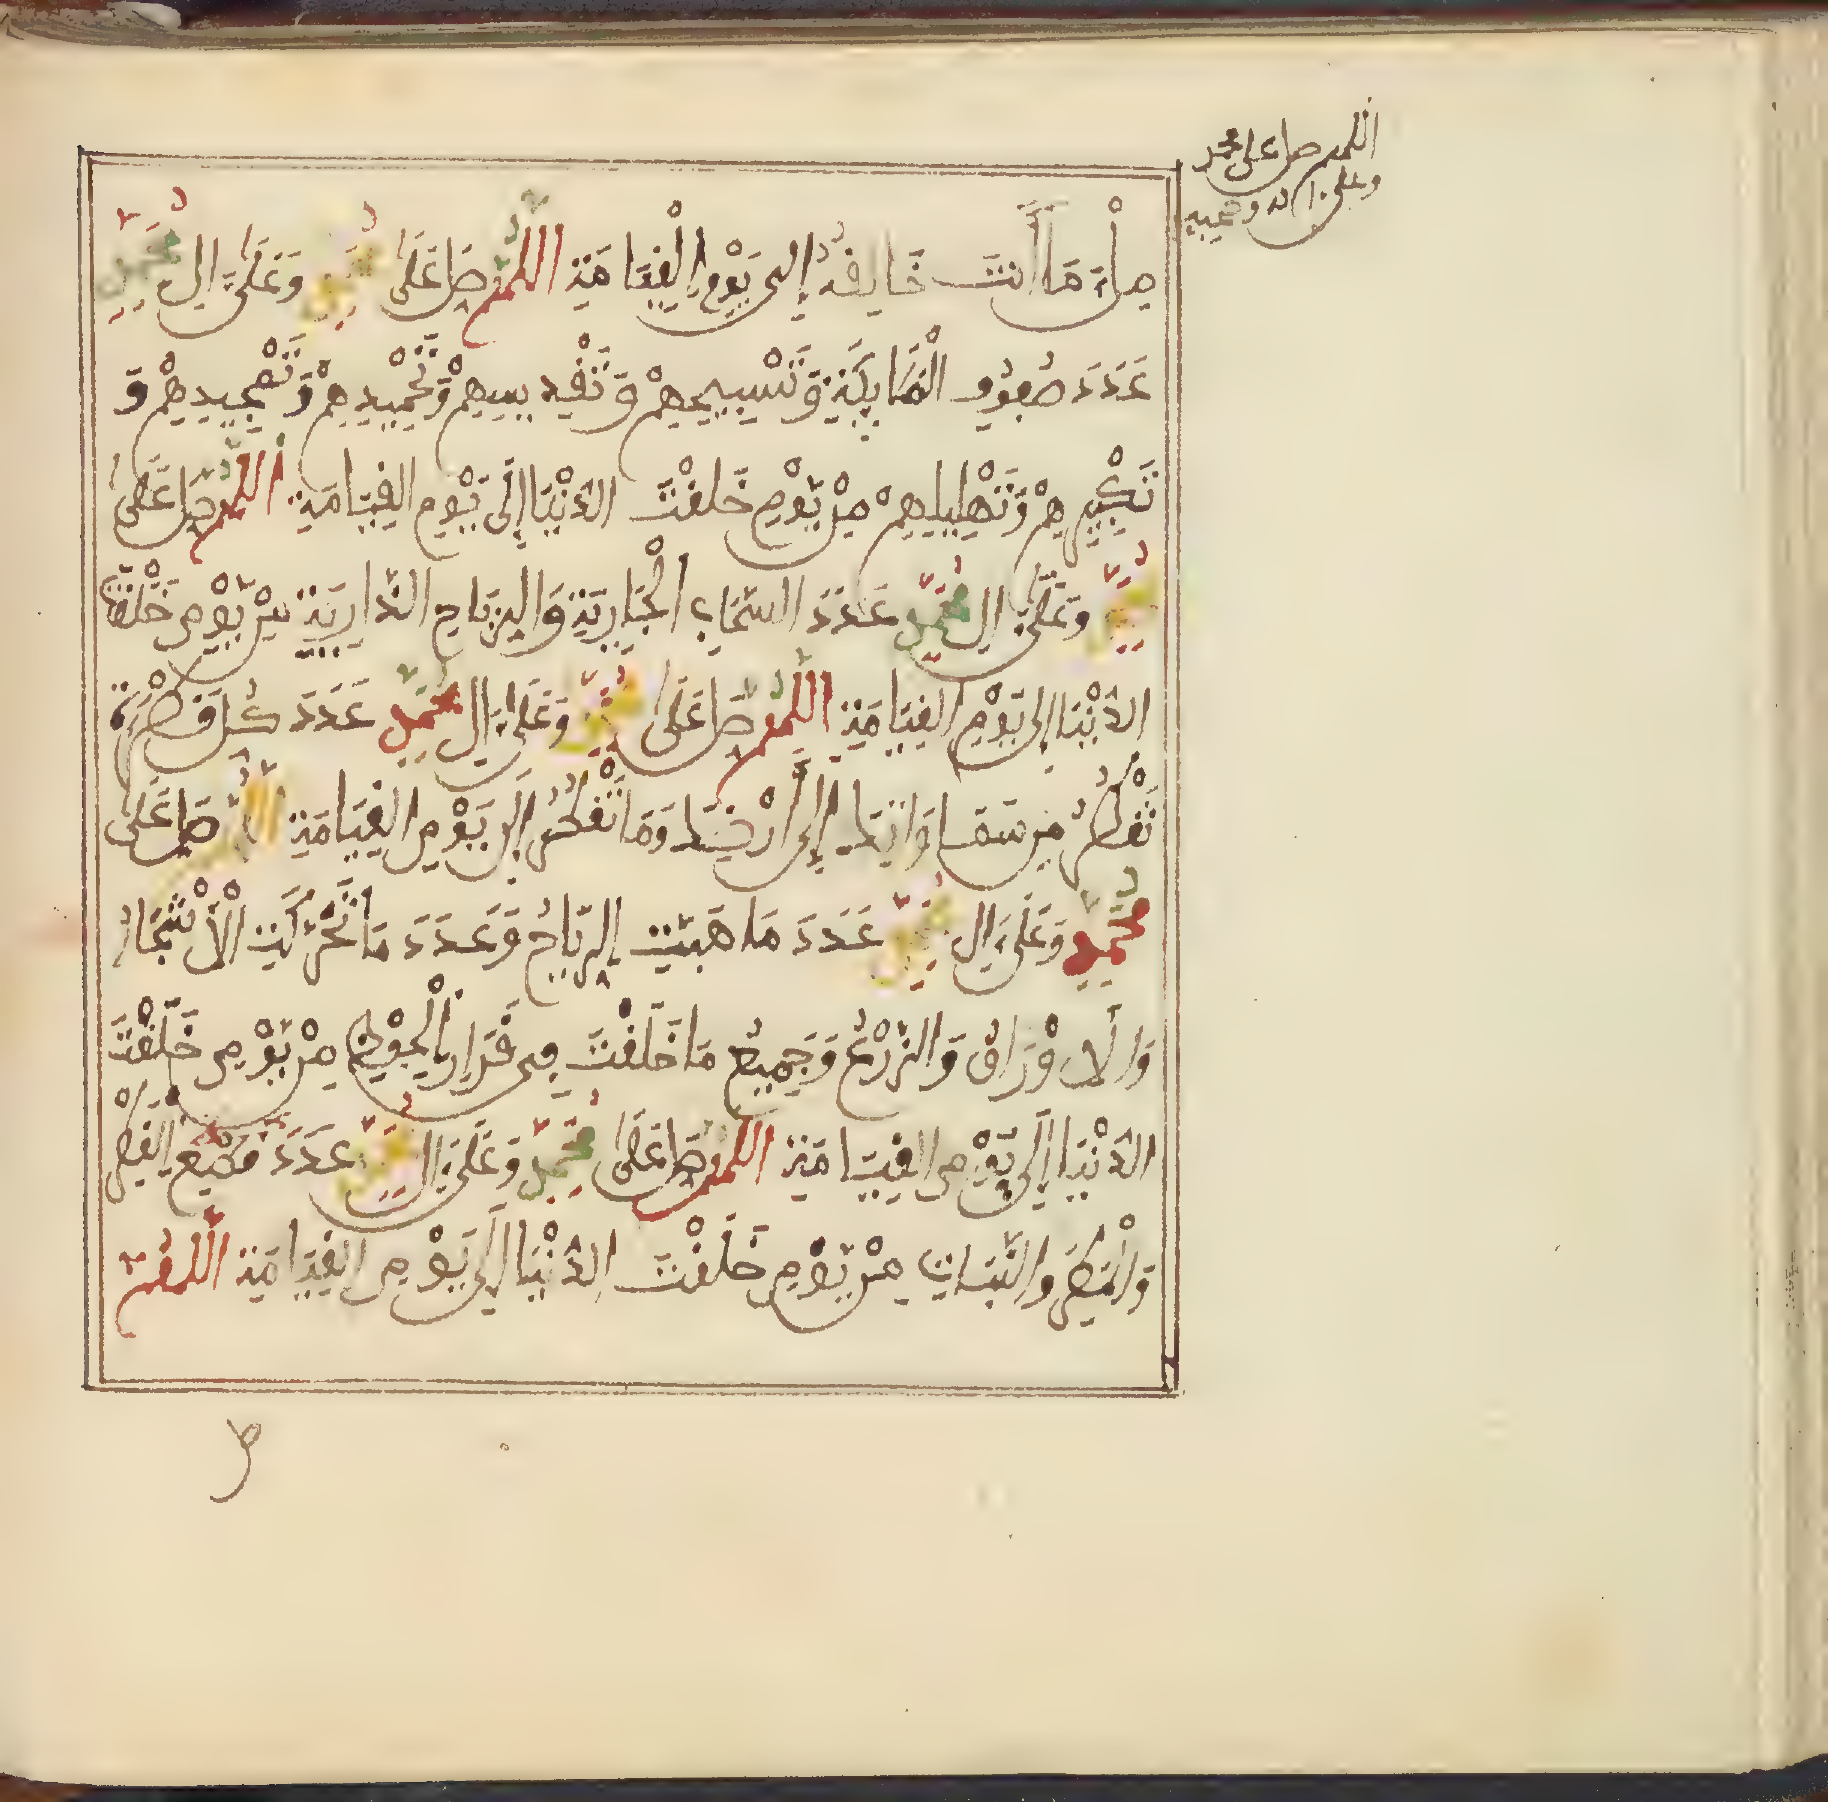 اللهم صل على محمد
وعلى ءاله وصحبه
مِلْءَ مَا أَنتَ خَالِقُهُ إِلَى يَوْمِ الْقِيَامَةِ اللَّهُمَّ صَلِّ عَلَى مُحَمَّدٍ وَعَلَىٰ ءَالِ مُحَمَّدٍ
عَدَدَ صُفُوفِ الْمَلَائِكَةِ وَتَسْبِيحِهِمْ وَتَقْدِيسِهِمْ وَتَحْمِيدِهِمْ وَتَمْجِيدِهِمْ وَ
تَكْبِيرِهِمْ وَتَهْلِيلِهِمْ مِنْ يَوْمِ خَلَقْتَ الدُّنْيَا إِلَى يَوْمِ الْقِيَامَةِ اللَّهُمَّ صَلِّ عَلَى
مُحَمَّدٍ وَعَلَىٰ ءَالِ مُحَمَّدٍ عَدَدَ السَّحَابِ الْجَارِيَةِ وَالرِّيَاحِ الذَّارِيَةِ مِنْ يَوْمِ خَلَقْتَ
الدُّنْيَا إِلَى يَوْمِ الْقِيَامَةِ اللَّهُمَّ صَلِّ عَلَى مُحَمَّدٍ وَعَلَىٰ ءَالِ مُحَمَّدٍ عَدَدَ كُلِّ قَطْرَةٍ
تَقْطُرُ مِن سَمَاوَاتِكَ إِلَى أَرْضِكَ وَمَا تَقْطُرُ إِلَى يَوْمِ الْقِيَامَةِ اللَّهُمَّ صَلِّ عَلَى
مُحَمَّدٍ وَعَلَىٰ ءَالِ مُحَمَّدٍ عَدَدَ مَا هَبَّتِ الرِّيَاحُ وَعَدَدَ مَا تَحَرَّكَتِ الْأَشْجَارُ
وَالْأَوْرَاقُ وَالزَّرْعُ وَجَمِيعُ مَا خَلَقْتَ فِي قَرَارِ الْحِفْظِ مِنْ يَوْمِ خَلَقْتَ
الدُّنْيَا إِلَى يَوْمِ الْقِيَامَةِ اللَّهُمَّ صَلِّ عَلَى مُحَمَّدٍ وَعَلَىٰ ءَالِ مُحَمَّدٍ عَدَدَ الْقَطْرِ
وَالْمَطَرِ وَالنَّبَاتِ مِنْ يَوْمِ خَلَقْتَ الدُّنْيَا إِلَى يَوْمِ الْقِيَامَةِ اللَّهُمَّ